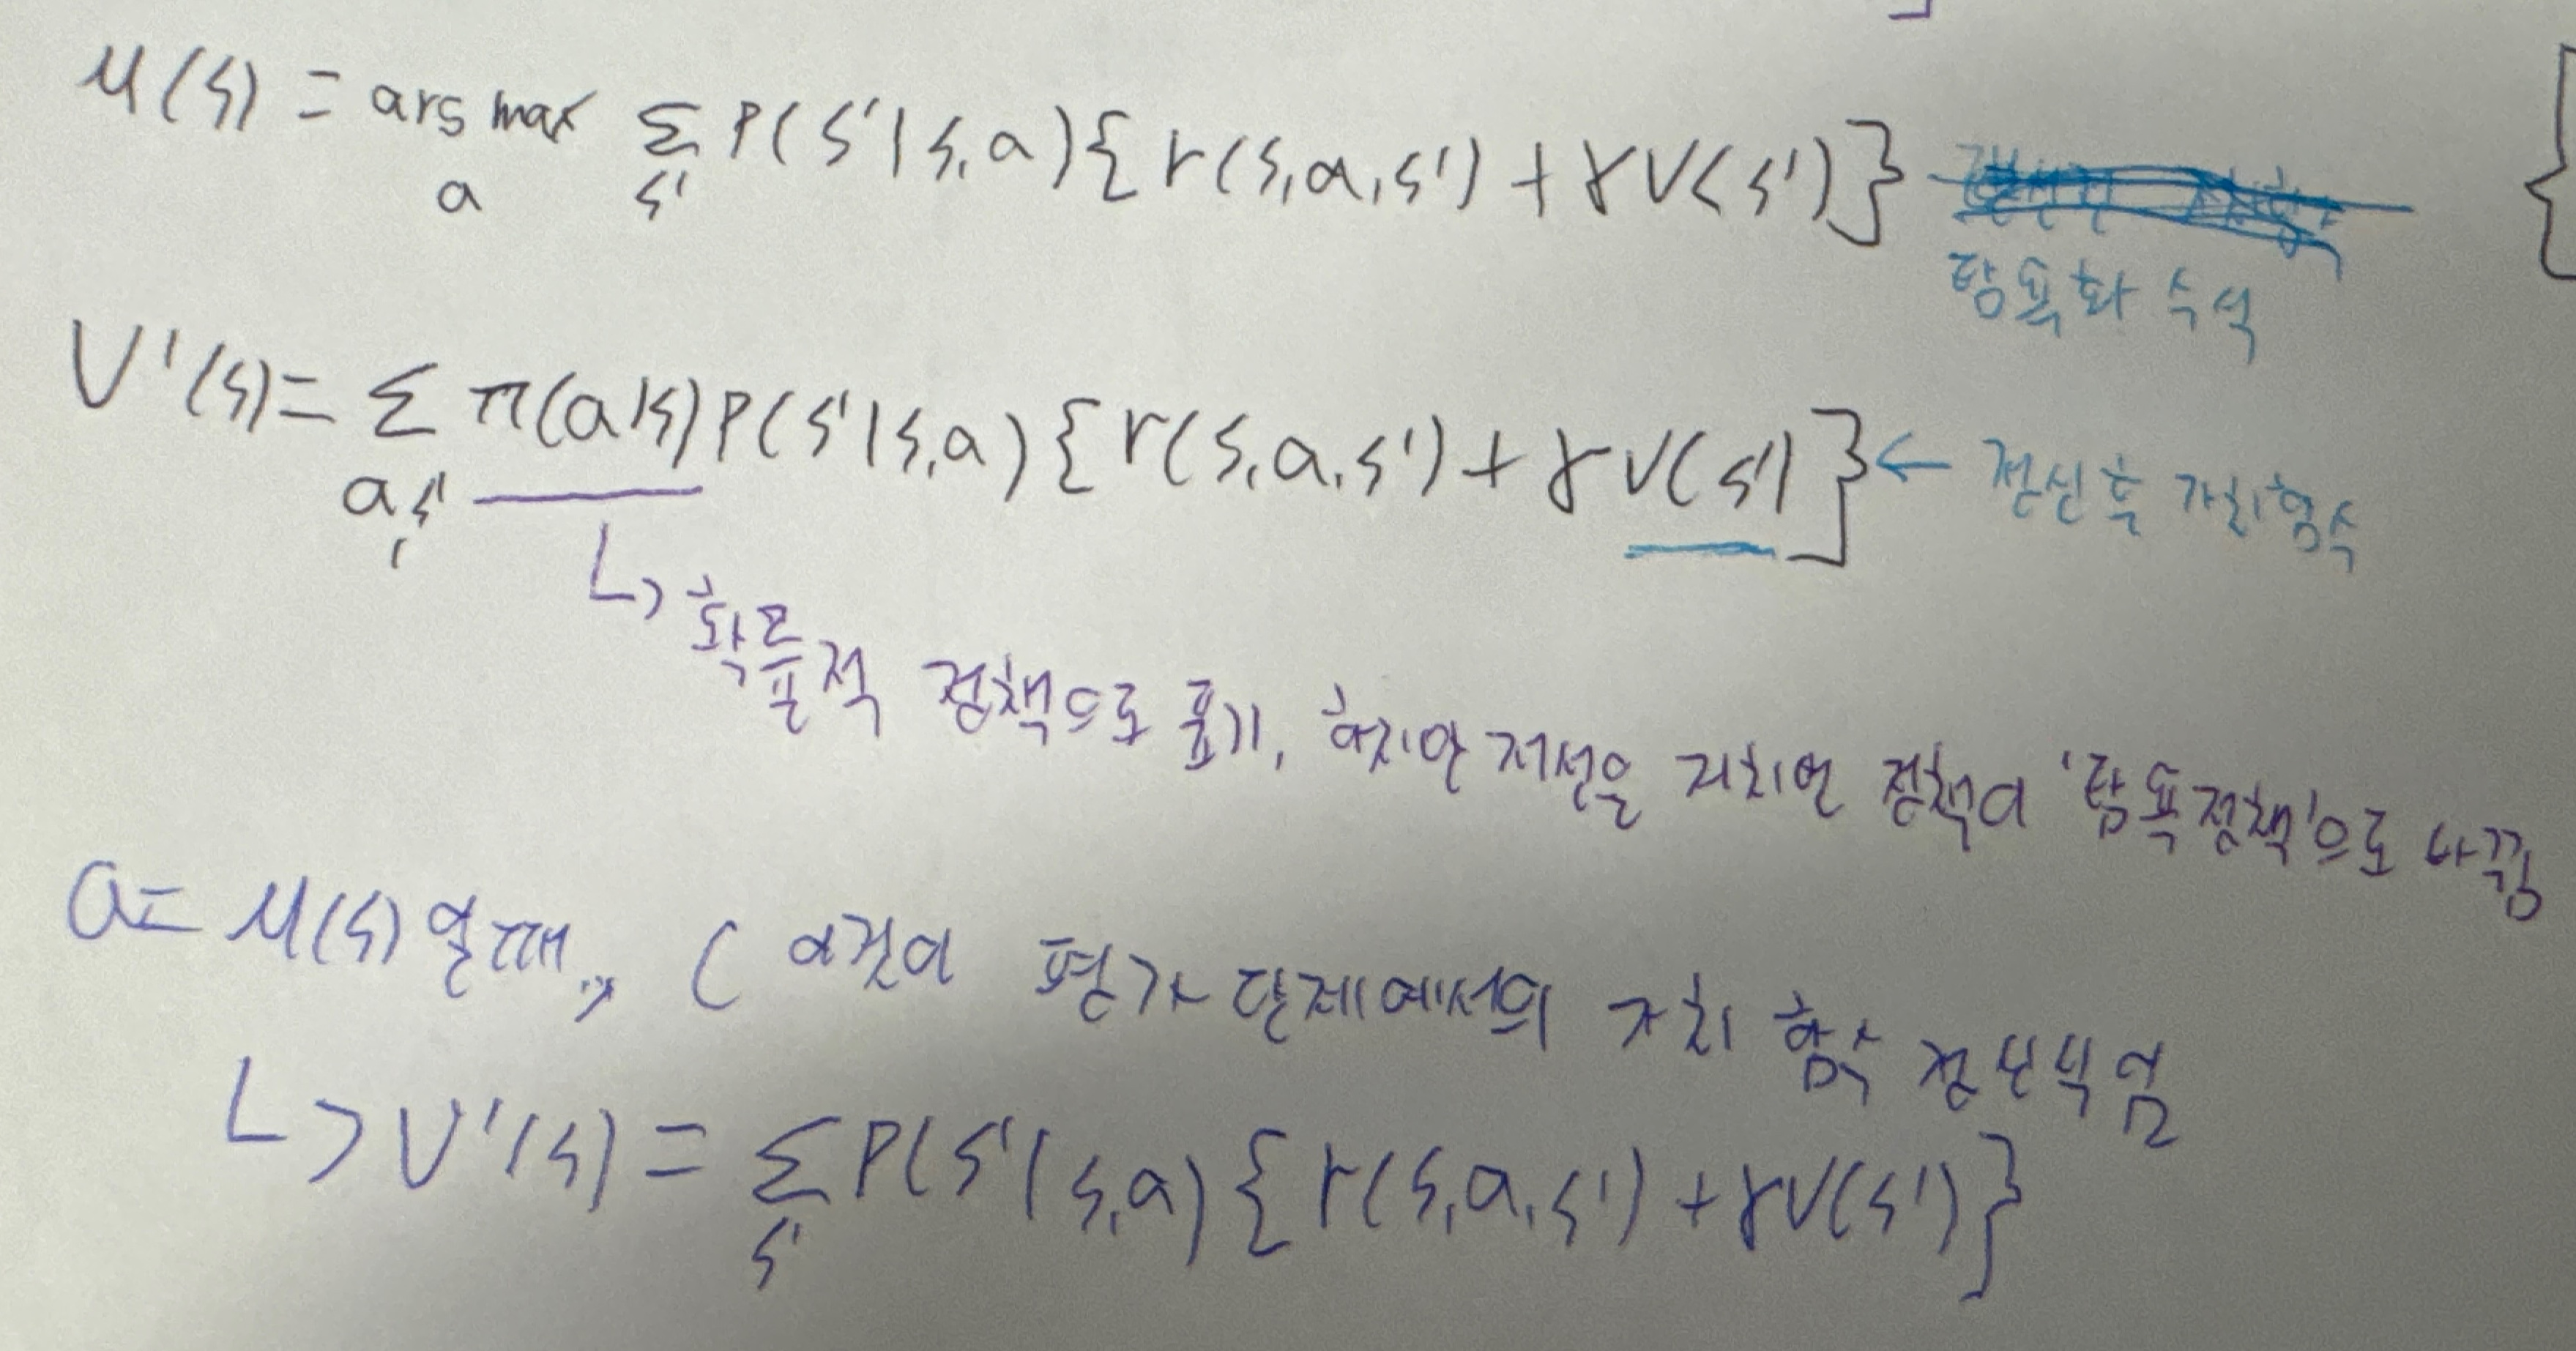 μ(s) = arg max Σ P(s'|s,a){r(s,a,s') + γV(s')}
a s'
탐욕화 수식
V'(s) = Σ π(a|s)P(s'|s,a){r(s,a,s') + γV(s')} ← 갱신 후 가치함수
a,s'
↳ 확률적 정책으로 표기, 하지만 개선을 거치면 정책이 '탐욕정책'으로 바뀜
a = μ(s) 일때, ( 이것이 평가 단계에서의 가치 함수 갱신식임
↳ V'(s) = Σ P(s'|s,a){r(s,a,s') + γV(s')}
s'